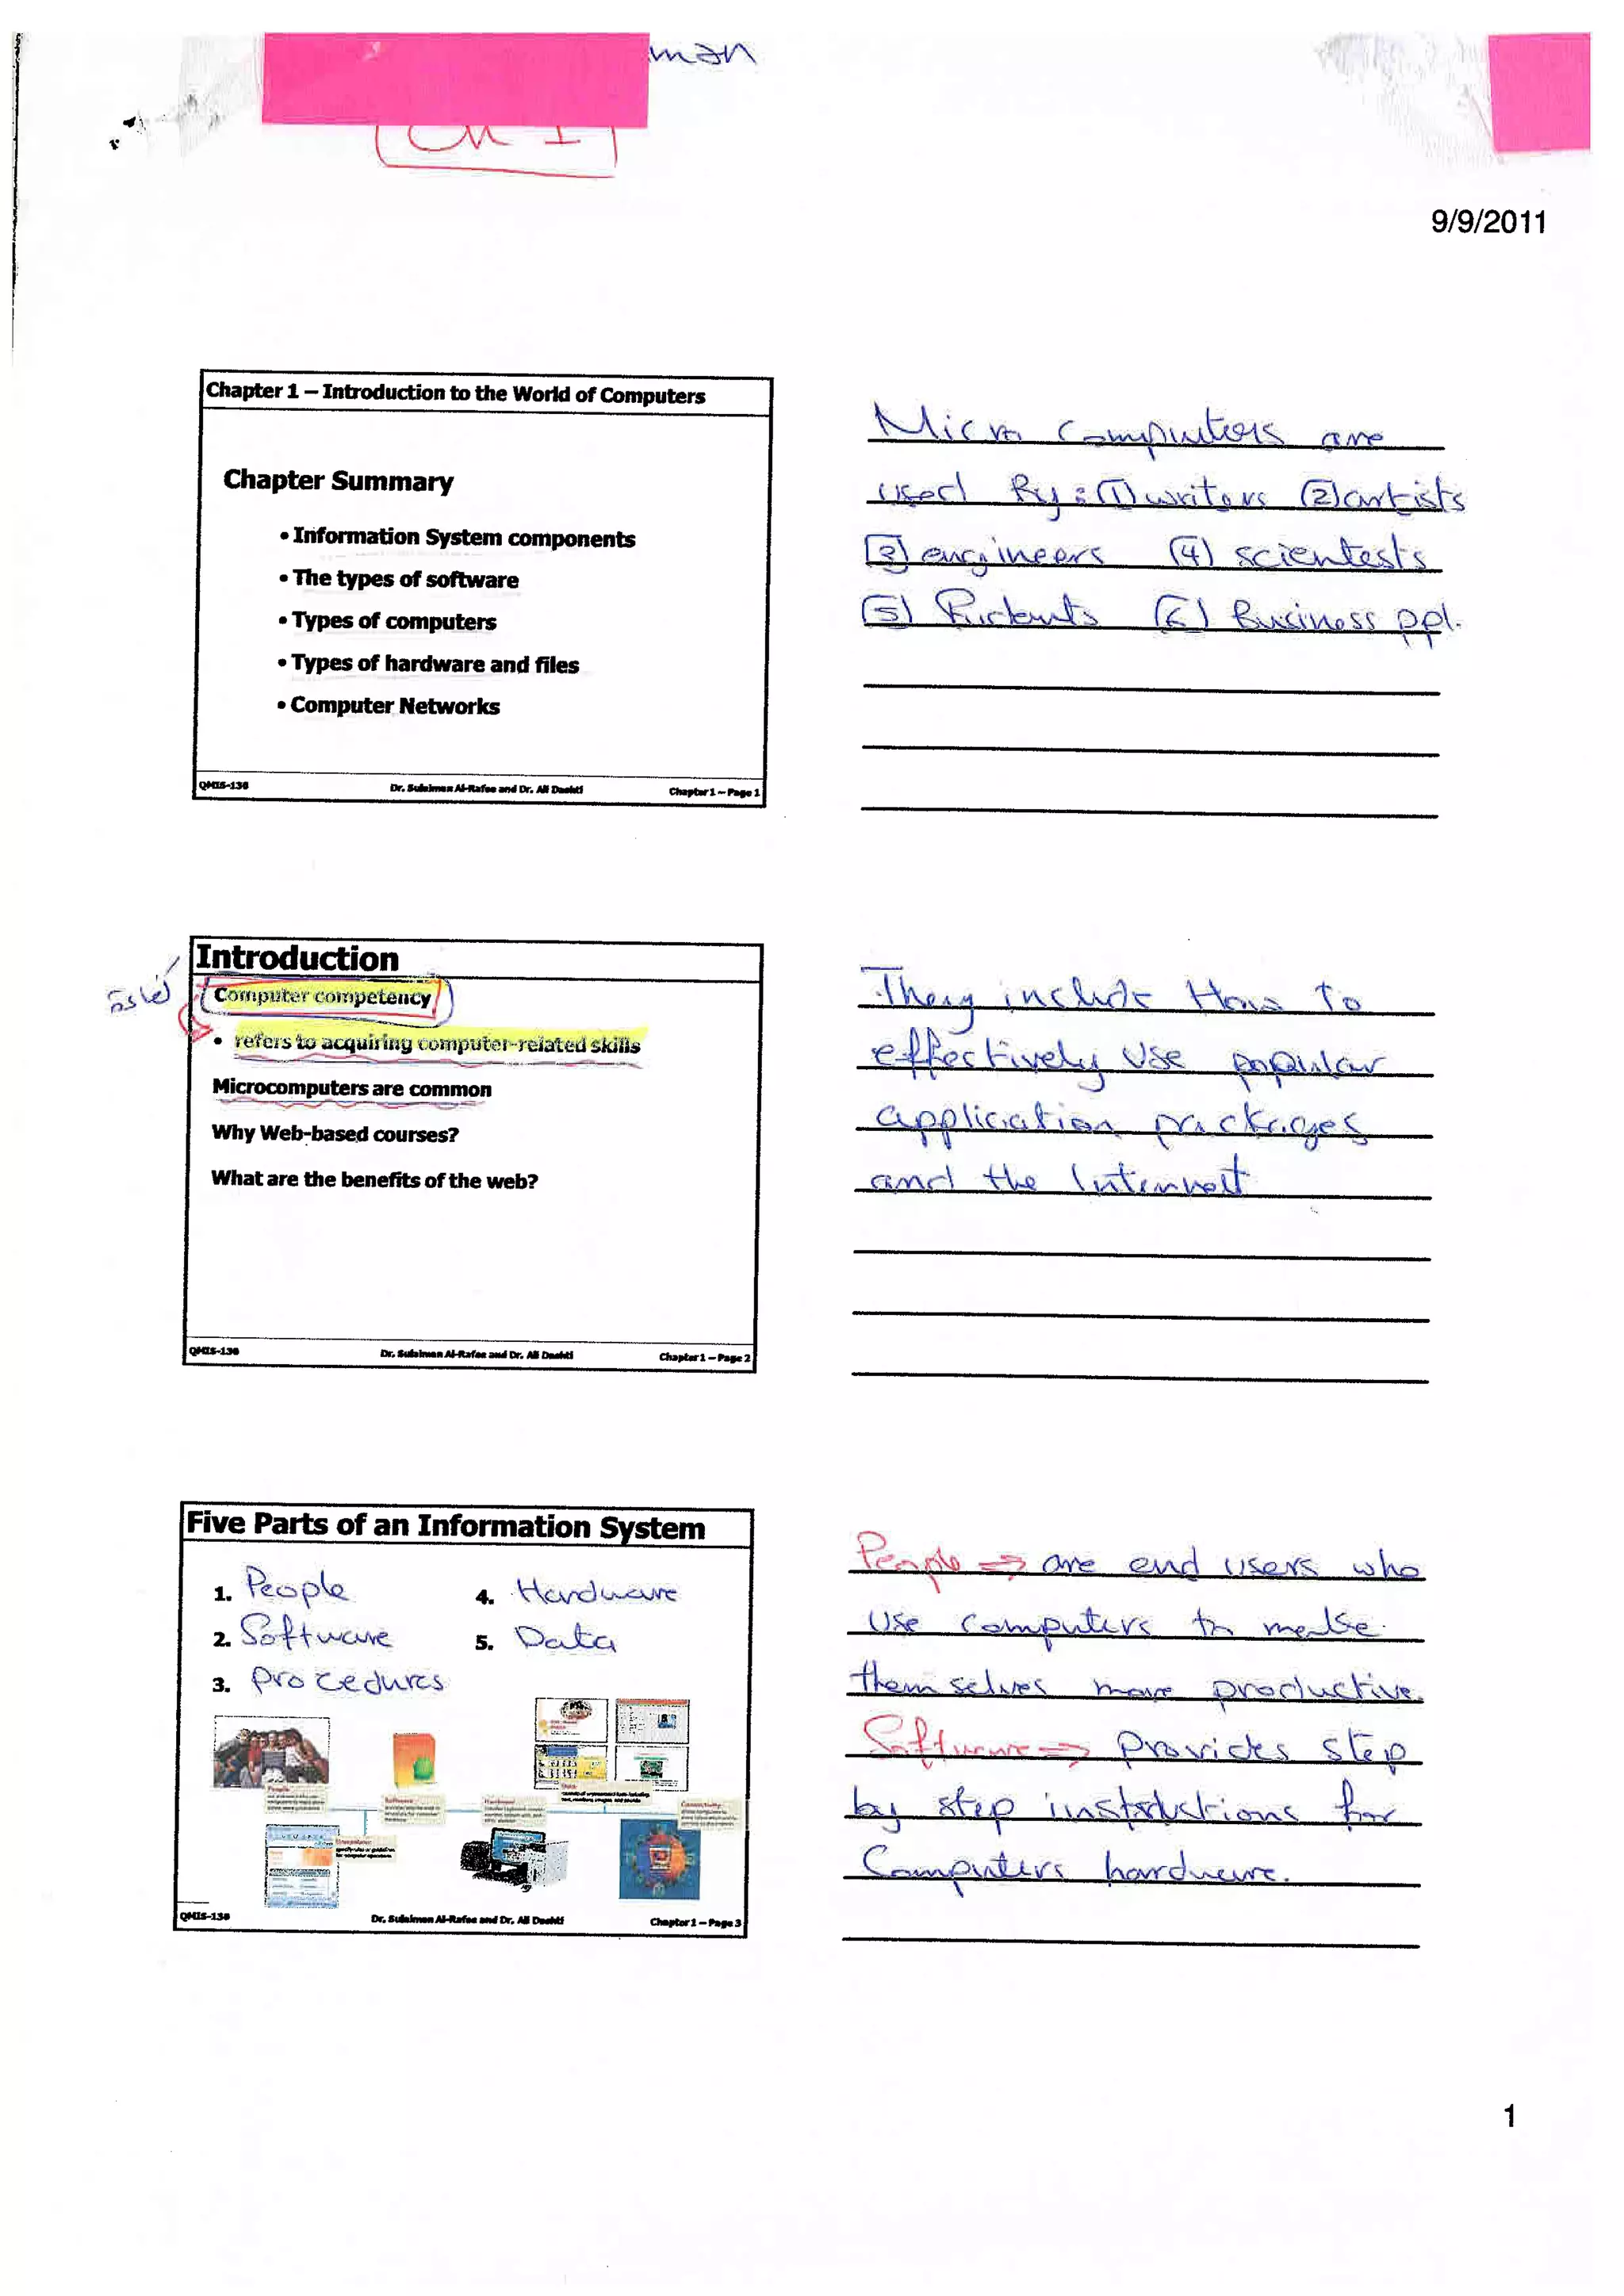 man
Ch 1
9/9/2011
Chapter 1 – Introduction to the World of Computers
Chapter Summary
• Information System components
• The types of software
• Types of computers
• Types of hardware and files
• Computer Networks
QMIS-130 Dr. Sulaiman Al-Rafee and Dr. Ali Dashti Chapter 1 – Page 1
Micro computers are
used By: (1) writers (2) artists
(3) engineers (4) scientests
(5) (6) Business ppl.
Introduction
Computer competency
• refers to acquiring computer-related skills
Microcomputers are common
Why Web-based courses?
What are the benefits of the web?
QMIS-130 Dr. Sulaiman Al-Rafee and Dr. Ali Dashti Chapter 1 – Page 2
They include How To
effectively Use popular
application packages
and the Internet
Five Parts of an Information System
1. People
2. Software
3. procedures
4. Hardware
5. Data
QMIS-130 Dr. Sulaiman Al-Rafee and Dr. Ali Dashti Chapter 1 – Page 3
People ⇒ are end users who
Use computers to make
themselves more productive.
Software ⇒ provides step
by step instructions for
Computers hardware.
1